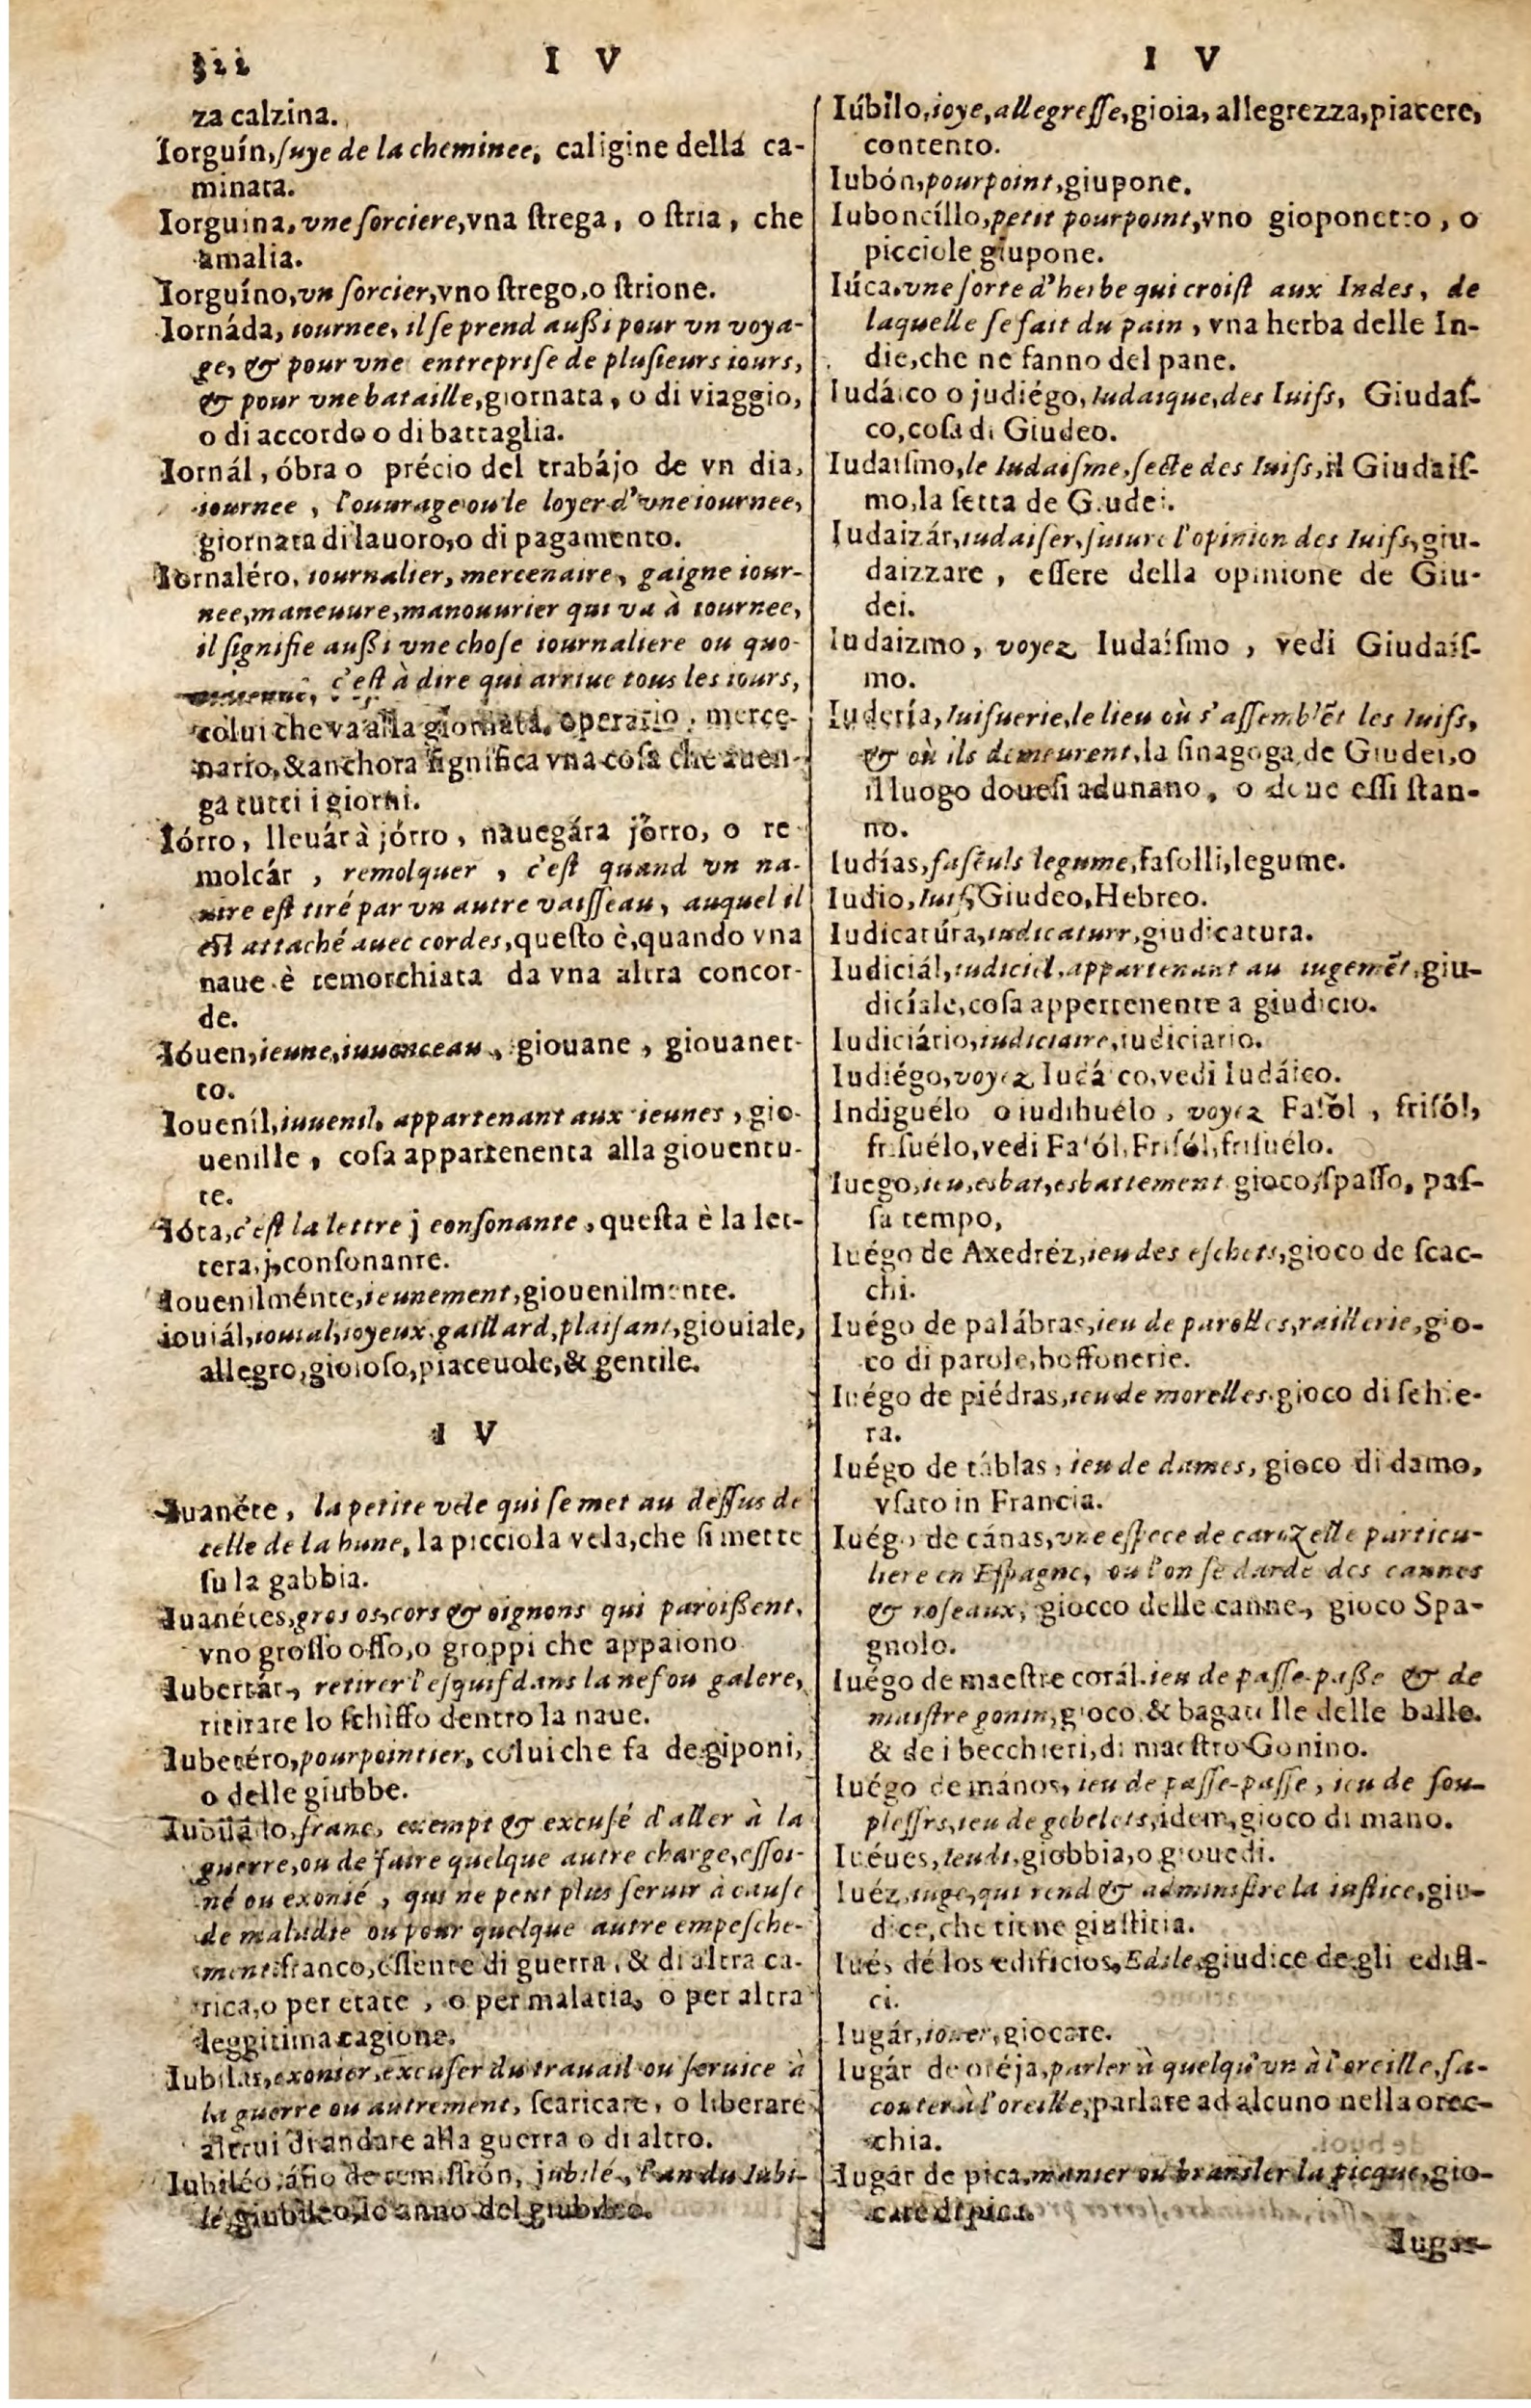 I V
za calzina.
Iorguín, ſuye de la cheminee, caligine della ca-
minata.
Iorguina, vne ſorciere, vna ſtrega, o ſtria, che
amalia.
Iorguíno, vn ſorcier, vno ſtrego, o ſtrione.
Iornáda, iournee, il ſe prend auſſi pour vn voya-
ge, & pour vne entrepriſe de pluſieurs iours,
& pour vne bataille, giornata, o di viaggio,
o di accordo o di battaglia.
Iornál, óbra o précio del trabájo de vn dia,
iournee, l'ouurage ou le loyer d'vne iournee,
giornata di lauoro, o di pagamento.
Iornaléro, iournalier, mercenaire, gaigne iour-
nee, maneuure, manouurier qui va à iournee,
il ſignifie auſſi vne choſe iournaliere ou quo-
c'eſt à dire qui arriue tous les iours,
colui che va alla giornata, operario, merce-
nario, & anchora ſignifica vna coſa che auen-
ga tutti i giorni.
Iórro, lleuár à jórro, nauegára jórro, o re
molcár, remolquer, c'eſt quand vn na-
uire eſt tiré par vn autre vaiſſeau, auquel il
eſt attaché auec cordes, queſto è, quando vna
naue è remorchiata da vna altra concor-
de.
Ióuen, ieune, iuuonceau, giouane, giouanet-
to.
Ioueníl, iuuenil, appartenant aux ieunes, gio-
uenille, coſa appartenenta alla giouentu-
te.
Ióta, c'eſt la lettre j conſonante, queſta è la let-
tera, j, conſonante.
Iouenilménte, ieunement, giouenilmente.
iouiál, iouial, ioyeux, gaillard, plaiſant, giouiale,
allegro, gioioſo, piaceuole, & gentile.
I V
Iuanéte, la petite vele qui ſe met au deſſus de
celle de la hune, la picciola vela, che ſi mette
ſu la gabbia.
Iuanétes, gros os, cors & oignons qui paroiſſent,
vno groſſo oſſo, o groppi che appaiono
Iubertár, retirer l'eſquif dans la nef ou galere,
ritirare lo ſchiffo dentro la naue.
Iubetéro, pourpointier, colui che fa de giponi,
o delle giubbe.
Iubilá lo, franc, exempt & excuſé d'aller à la
guerre, ou de faire quelque autre charge, eſſoi-
né ou exonié, qui ne peut plus ſeruir à cauſe
de maladie ou pour quelque autre empeſche-
ment: franco, eſſente di guerra, & di altra ca-
rica, o per etate, o per malatia, o per altra
leggitima cagione.
Iubilar, exonier, excuſer du trauail ou ſeruice à
la guerre ou autrement, ſcaricare, o liberare
altrui di andare alla guerra o di altro.
Iubiléo, áño de remiſſión, jubilé, l'an du Iubi-
lé, giubileo, lo anno del giubileo.
I V
Iúbilo, ioye, allegreſſe, gioia, allegrezza, piacere,
contento.
Iubón, pourpoint, giupone.
Iuboncíllo, petit pourpoint, vno gioponetto, o
picciole giupone.
Iúca, vne ſorte d'herbe qui croiſt aux Indes, de
laquelle ſe fait du pain, vna herba delle In-
die, che ne fanno del pane.
Iudáico o judiégo, Iudaique, des Iuifs, Giudaſ-
co, coſa di Giudeo.
Iudaiſmo, le Iudaiſme, ſecte des Iuifs, il Giudaiſ-
mo, la ſetta de Giudei.
Iudaizár, iudaiſer, ſuiure l'opinion des Iuifs, giu-
daizzare, eſſere della opinione de Giu-
dei.
Iudaizmo, voyez Iudaíſmo, vedi Giudaíſ-
mo.
Iudería, Iuifuerie, le lieu où s'aſſemblẽt les Iuifs,
& où ils demeurent, la ſinagoga de Giudei, o
il luogo doueſi adunano, o doue eſſi ſtan-
no.
Iudías, faſẽuls legume, faſolli, legume.
Iudio, Iuif, Giudeo, Hebreo.
Iudicatúra, iudicaturr, giudicatura.
Iudiciál, iudiciel, appartenant au iugemẽt, giu-
diciale, coſa appertenente a giudicio.
Iudiciário, iudiciaire, iudiciario.
Iudiégo, voyez Iudá co, vedi Iudáico.
Indiguélo o iudihuelo, voyez Faſól, friſól,
friſuélo, vedi Faſól, Friſól, friſuélo.
Iuego, ieu, esbat, esbattement gioco, ſpaſſo, paſ-
ſa tempo,
Iuégo de Axedréz, ieu des eſchets, gioco de ſcac-
chi.
Iuégo de palábras, ieu de parolles, raillerie, gio-
co di parole, boffonerie.
Iuégo de piédras, ieu de morelles, gioco di ſchie-
ra.
Iuégo de táblas, ieu de dames, gioco di damo,
vſato in Francia.
Iuégo de cánas, vne eſpece de carozelle particu-
liere en Eſpagne, ou l'on ſe darde des cannes
& roſeaux, giocco delle canne, gioco Spa-
gnolo.
Iuégo de maeſtre corál, ieu de paſſe-paſſe & de
maiſtre gonin, gioco, & bagatelle delle balle,
& de i becchieri, di maeſtro Gonino.
Iuégo de mános, ieu de paſſe-paſſe, ieu de ſou-
pleſſes, ieu de gobelets, idem, gioco di mano.
Iuéues, Ieudi, giobbia, o giouedi.
Iuéz, iuge, qui rend & adminiſtre la iuſtice, giu-
dice, che tiene giuſtitia.
Iués dé los edificios, Edile, giudice de gli edifi-
ci.
Iugár, iouer, giocare.
Iugár de oréja, parler à quelqu'vn à l'oreille, ſa-
couter à l'oreille, parlare ad alcuno nella orec-
chia.
Iugár de pica, manier ou branſler la picque, gio-
care di pica.
Iugar-